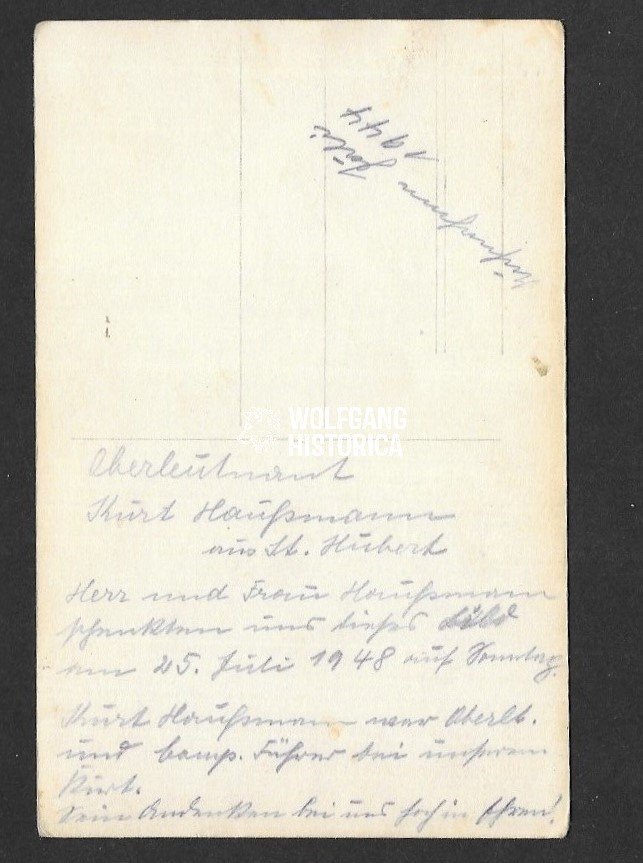 Juli
1944
WOLFGANG
HISTORICA
Oberleutnant
Kurt Haußmann
aus St. Hubert
Herr und Frau Haußmann
schenkten uns dieses Bild
am 25. Juli 1948 auf Sonntag.
Kurt Haußmann war Oberlt.
und Comp. Führer bei unserem
Kurt.
Sein Andenken bei uns hoch in Ehren!